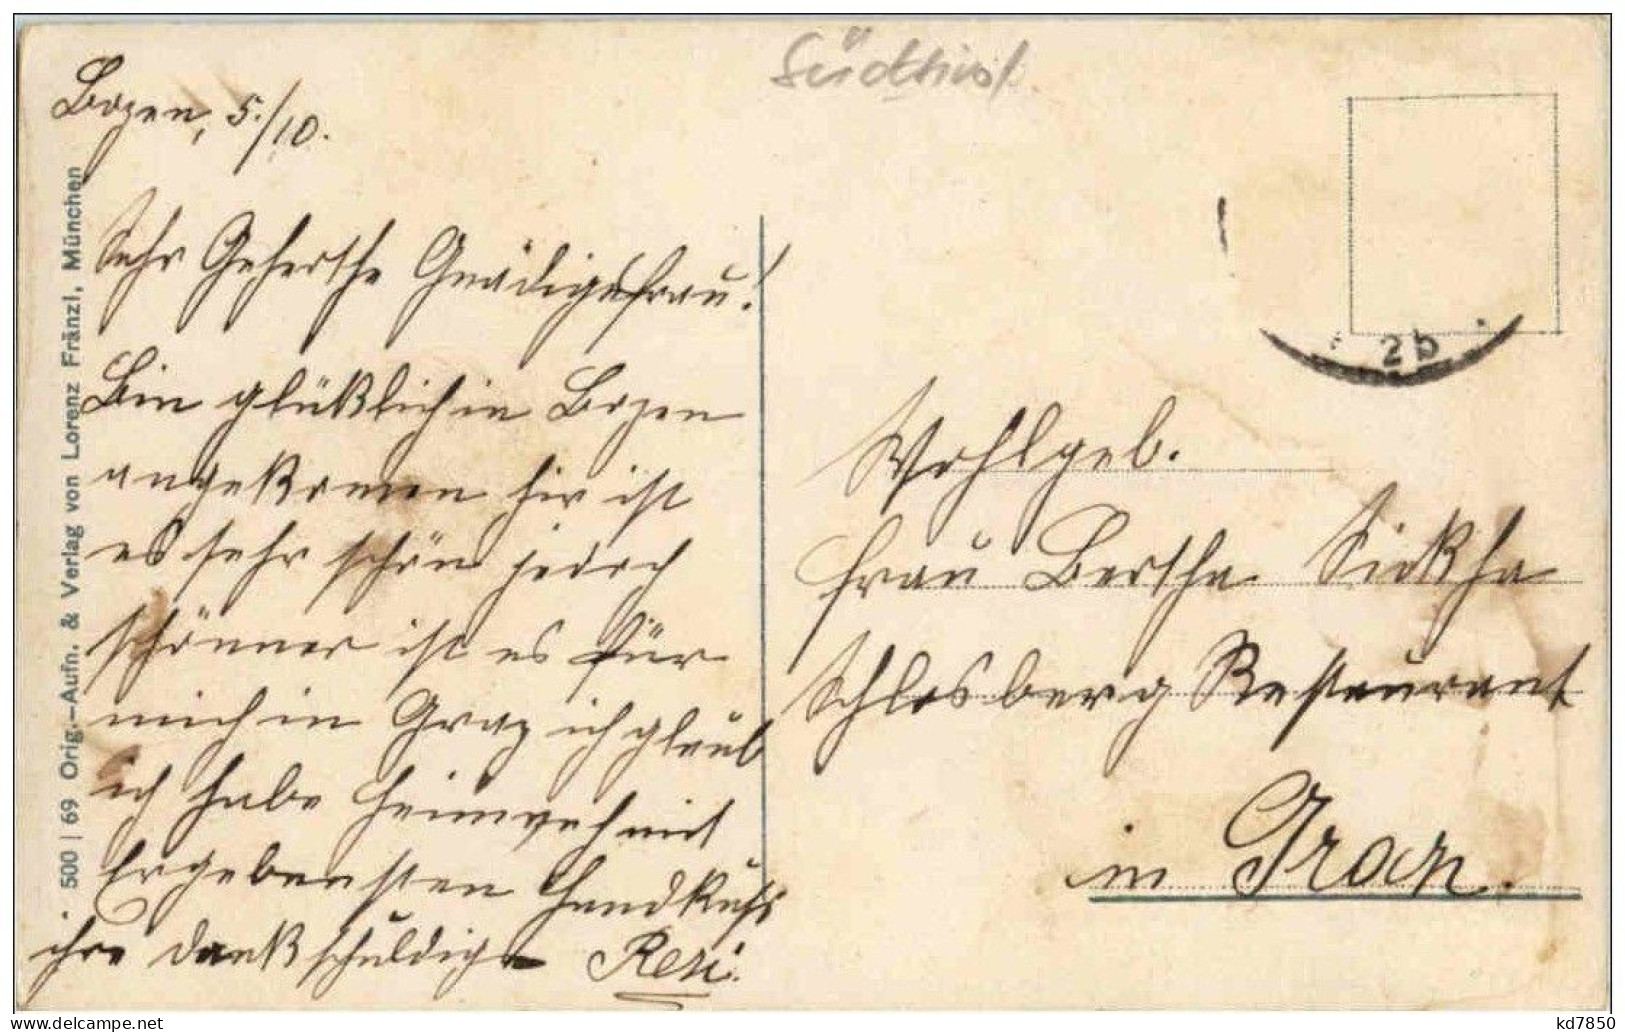 Südtirol
Bozen, 5./10.
Sehr Geherthe Gnädigefrau!
Bin glüklich in Bozen
angekomen hir ist
es sehr schön jedoch
schönner ist es für
mich in Graz ich glaub
ich habe Heimweh mit
Ergebensten Handkuß
ihre dankschuldige Resi.
500 | 69 Orig.-Aufn. & Verlag von Lorenz Fränzl, München
2b
Wohlgeb.
Frau Bertha Sikha
Schlosberg Restaurant
in Graz.
delcampe.net
kd7850